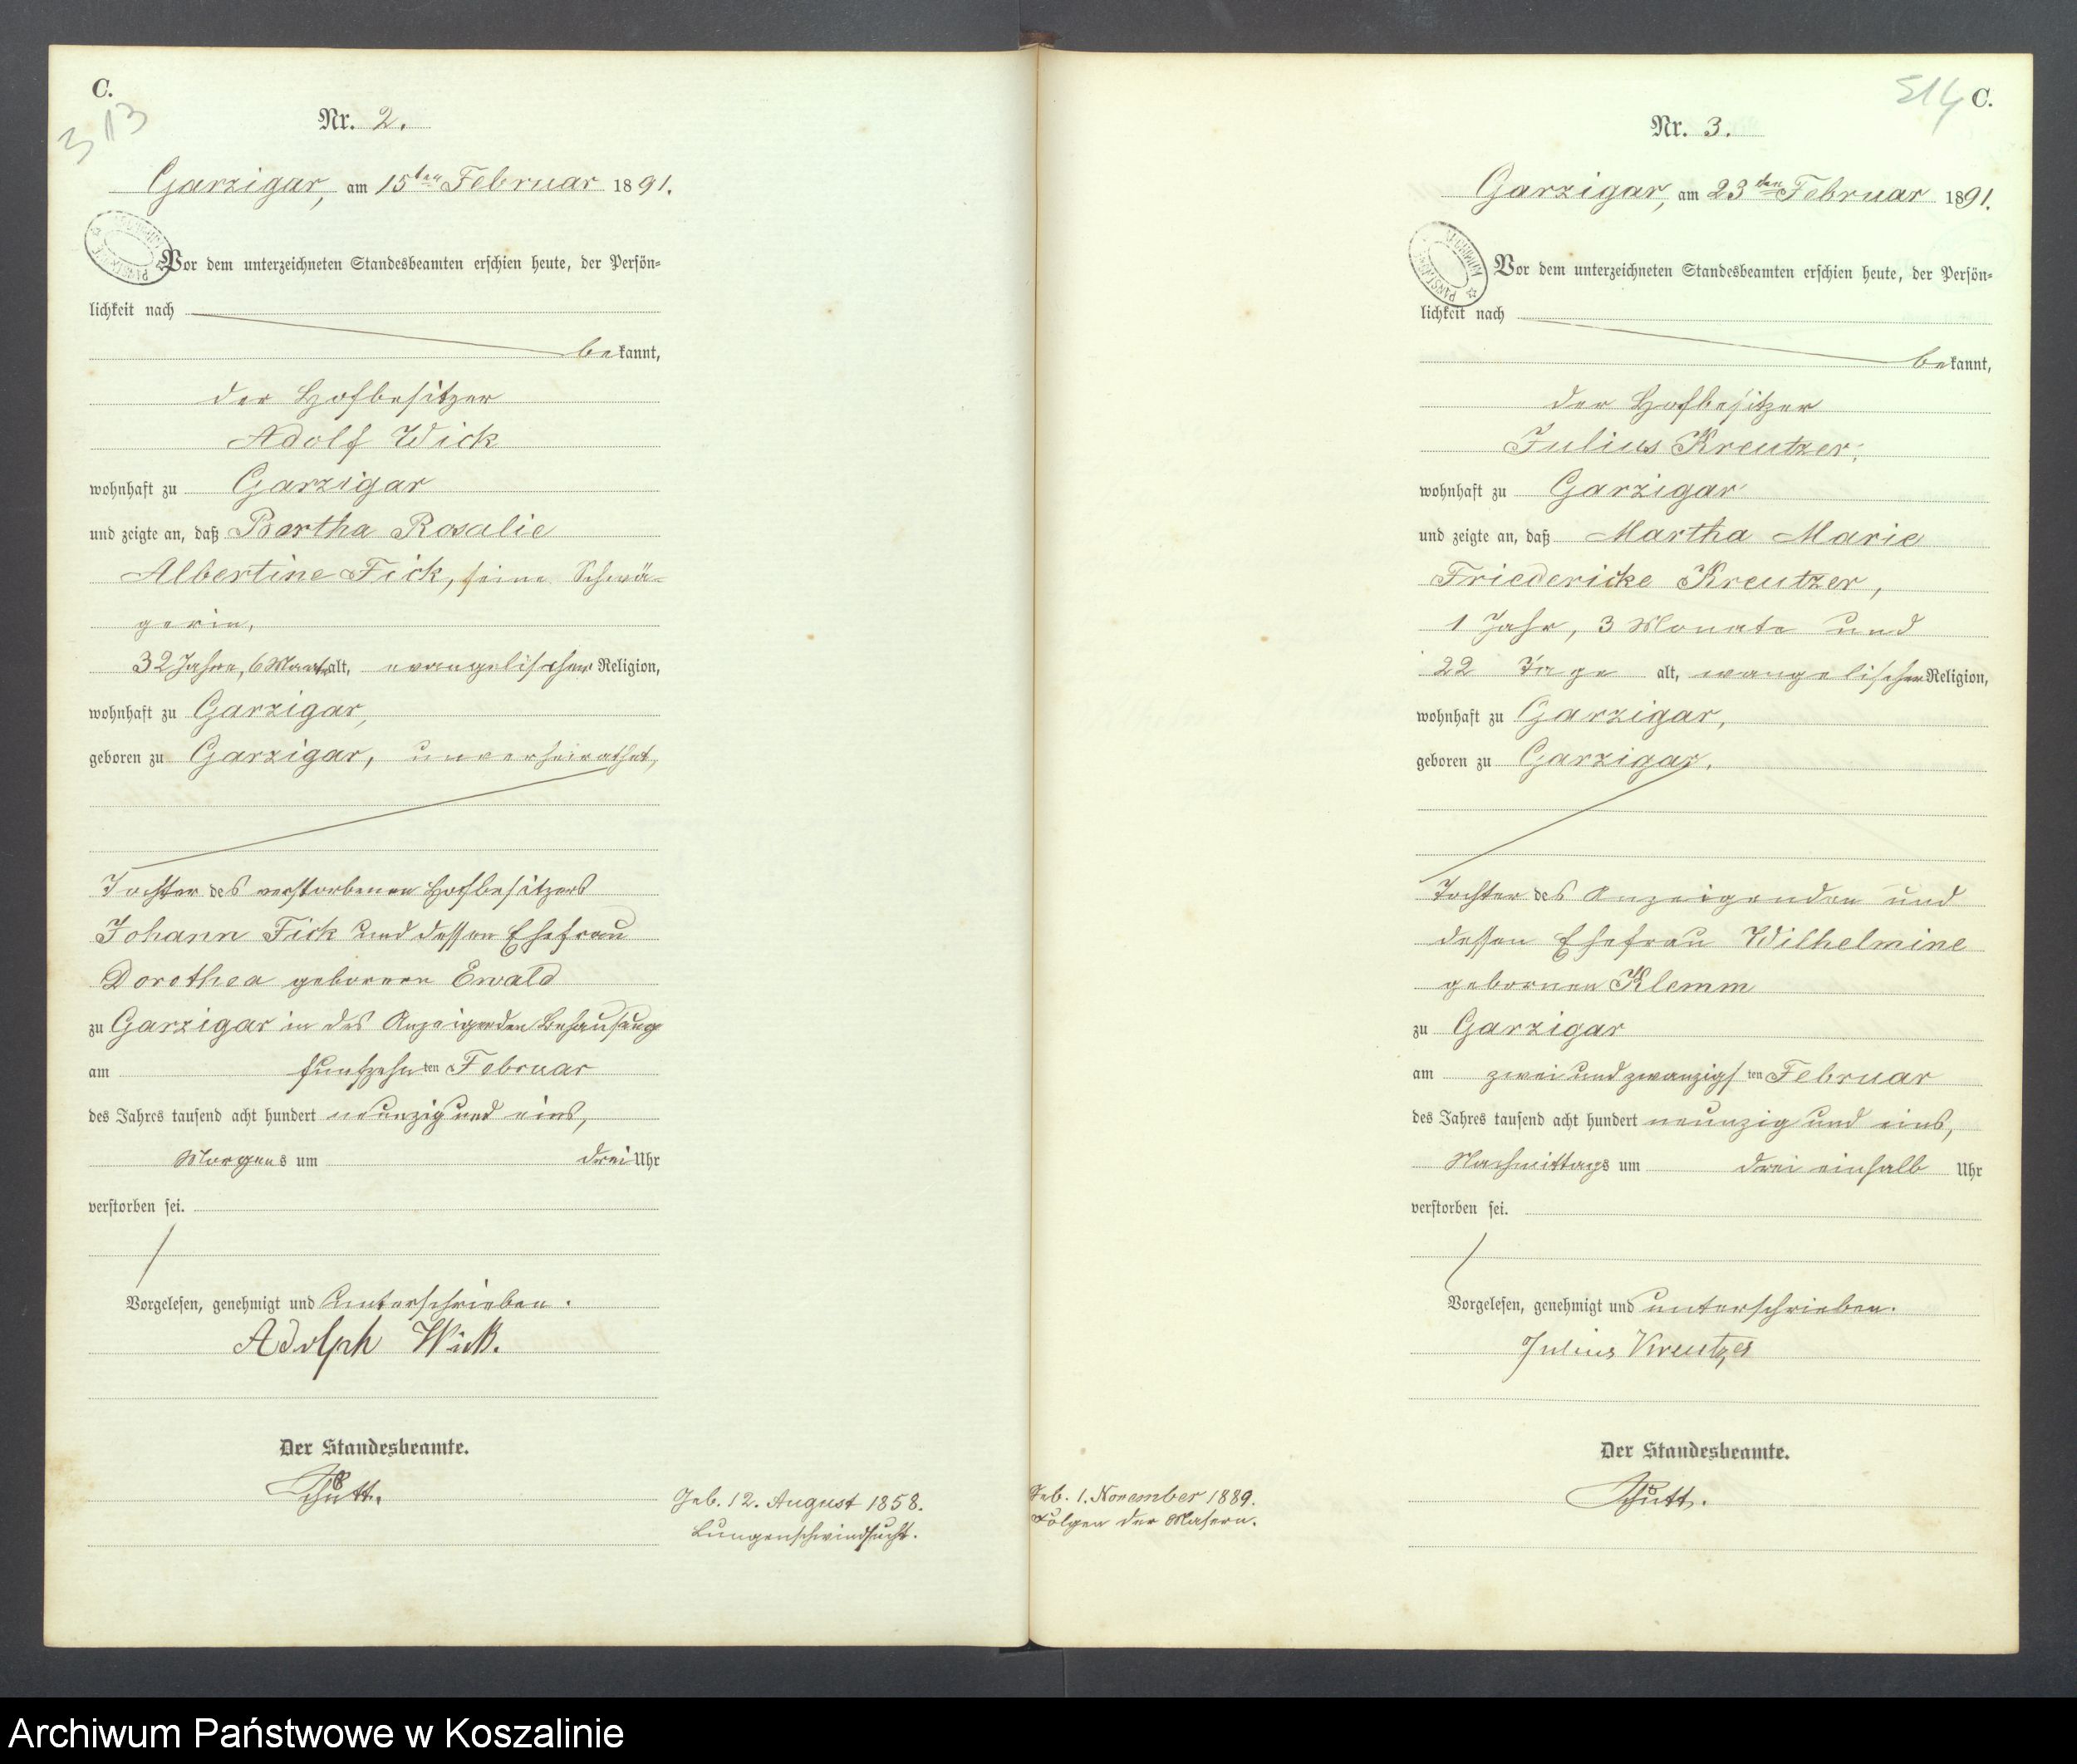 C.
Nr. 2.
Garzigar, am 15ten Februar 1891.
Vor dem unterzeichneten Standesbeamten erschien heute, der Persön=
lichkeit nach
bekannt,
der Hofbesitzer
Adolf Wick
wohnhaft zu Garzigar
und zeigte an, daß Bertha Rosalie
Albertine Fick, seine Schwä-
gerin,
32 Jahre, 6 Monate alt, evangelischer Religion,
wohnhaft zu Garzigar,
geboren zu Garzigar, unverheirathet,
Tochter des verstorbenen Hofbesitzers
Johann Fick und dessen Ehefrau
Dorothea geborenen Ewald
zu Garzigar in des Anzeigenden Behausung
am fünfzehnten Februar
des Jahres tausend acht hundert neunzig und eins,
Morgens um drei Uhr
verstorben sei.
Vorgelesen, genehmigt und unterschrieben.
Adolph Wick.
Der Standesbeamte.
Schütt.
Geb. 12. August 1858.
Lungenschwindsucht.
C.
Nr. 3.
Garzigar, am 23ten Februar 1891.
Vor dem unterzeichneten Standesbeamten erschien heute, der Persön=
lichkeit nach
bekannt,
der Hofbesitzer
Julius Kreutzer,
wohnhaft zu Garzigar
und zeigte an, daß Martha Marie
Friedericke Kreutzer,
1 Jahr, 3 Monate und
22 Tage alt, evangelischer Religion,
wohnhaft zu Garzigar,
geboren zu Garzigar,
Tochter des Anzeigenden und
dessen Ehefrau Wilhelmine
gebornen Klemm
zu Garzigar
am zwei und zwanzigsten Februar
des Jahres tausend acht hundert neunzig und eins,
Nachmittags um drei einhalb Uhr
verstorben sei.
Vorgelesen, genehmigt und unterschrieben.
Julius Kreutzer
Der Standesbeamte.
Schütt.
Geb. 1. November 1889.
Folgen der Masern.
Archiwum Państwowe w Koszalinie